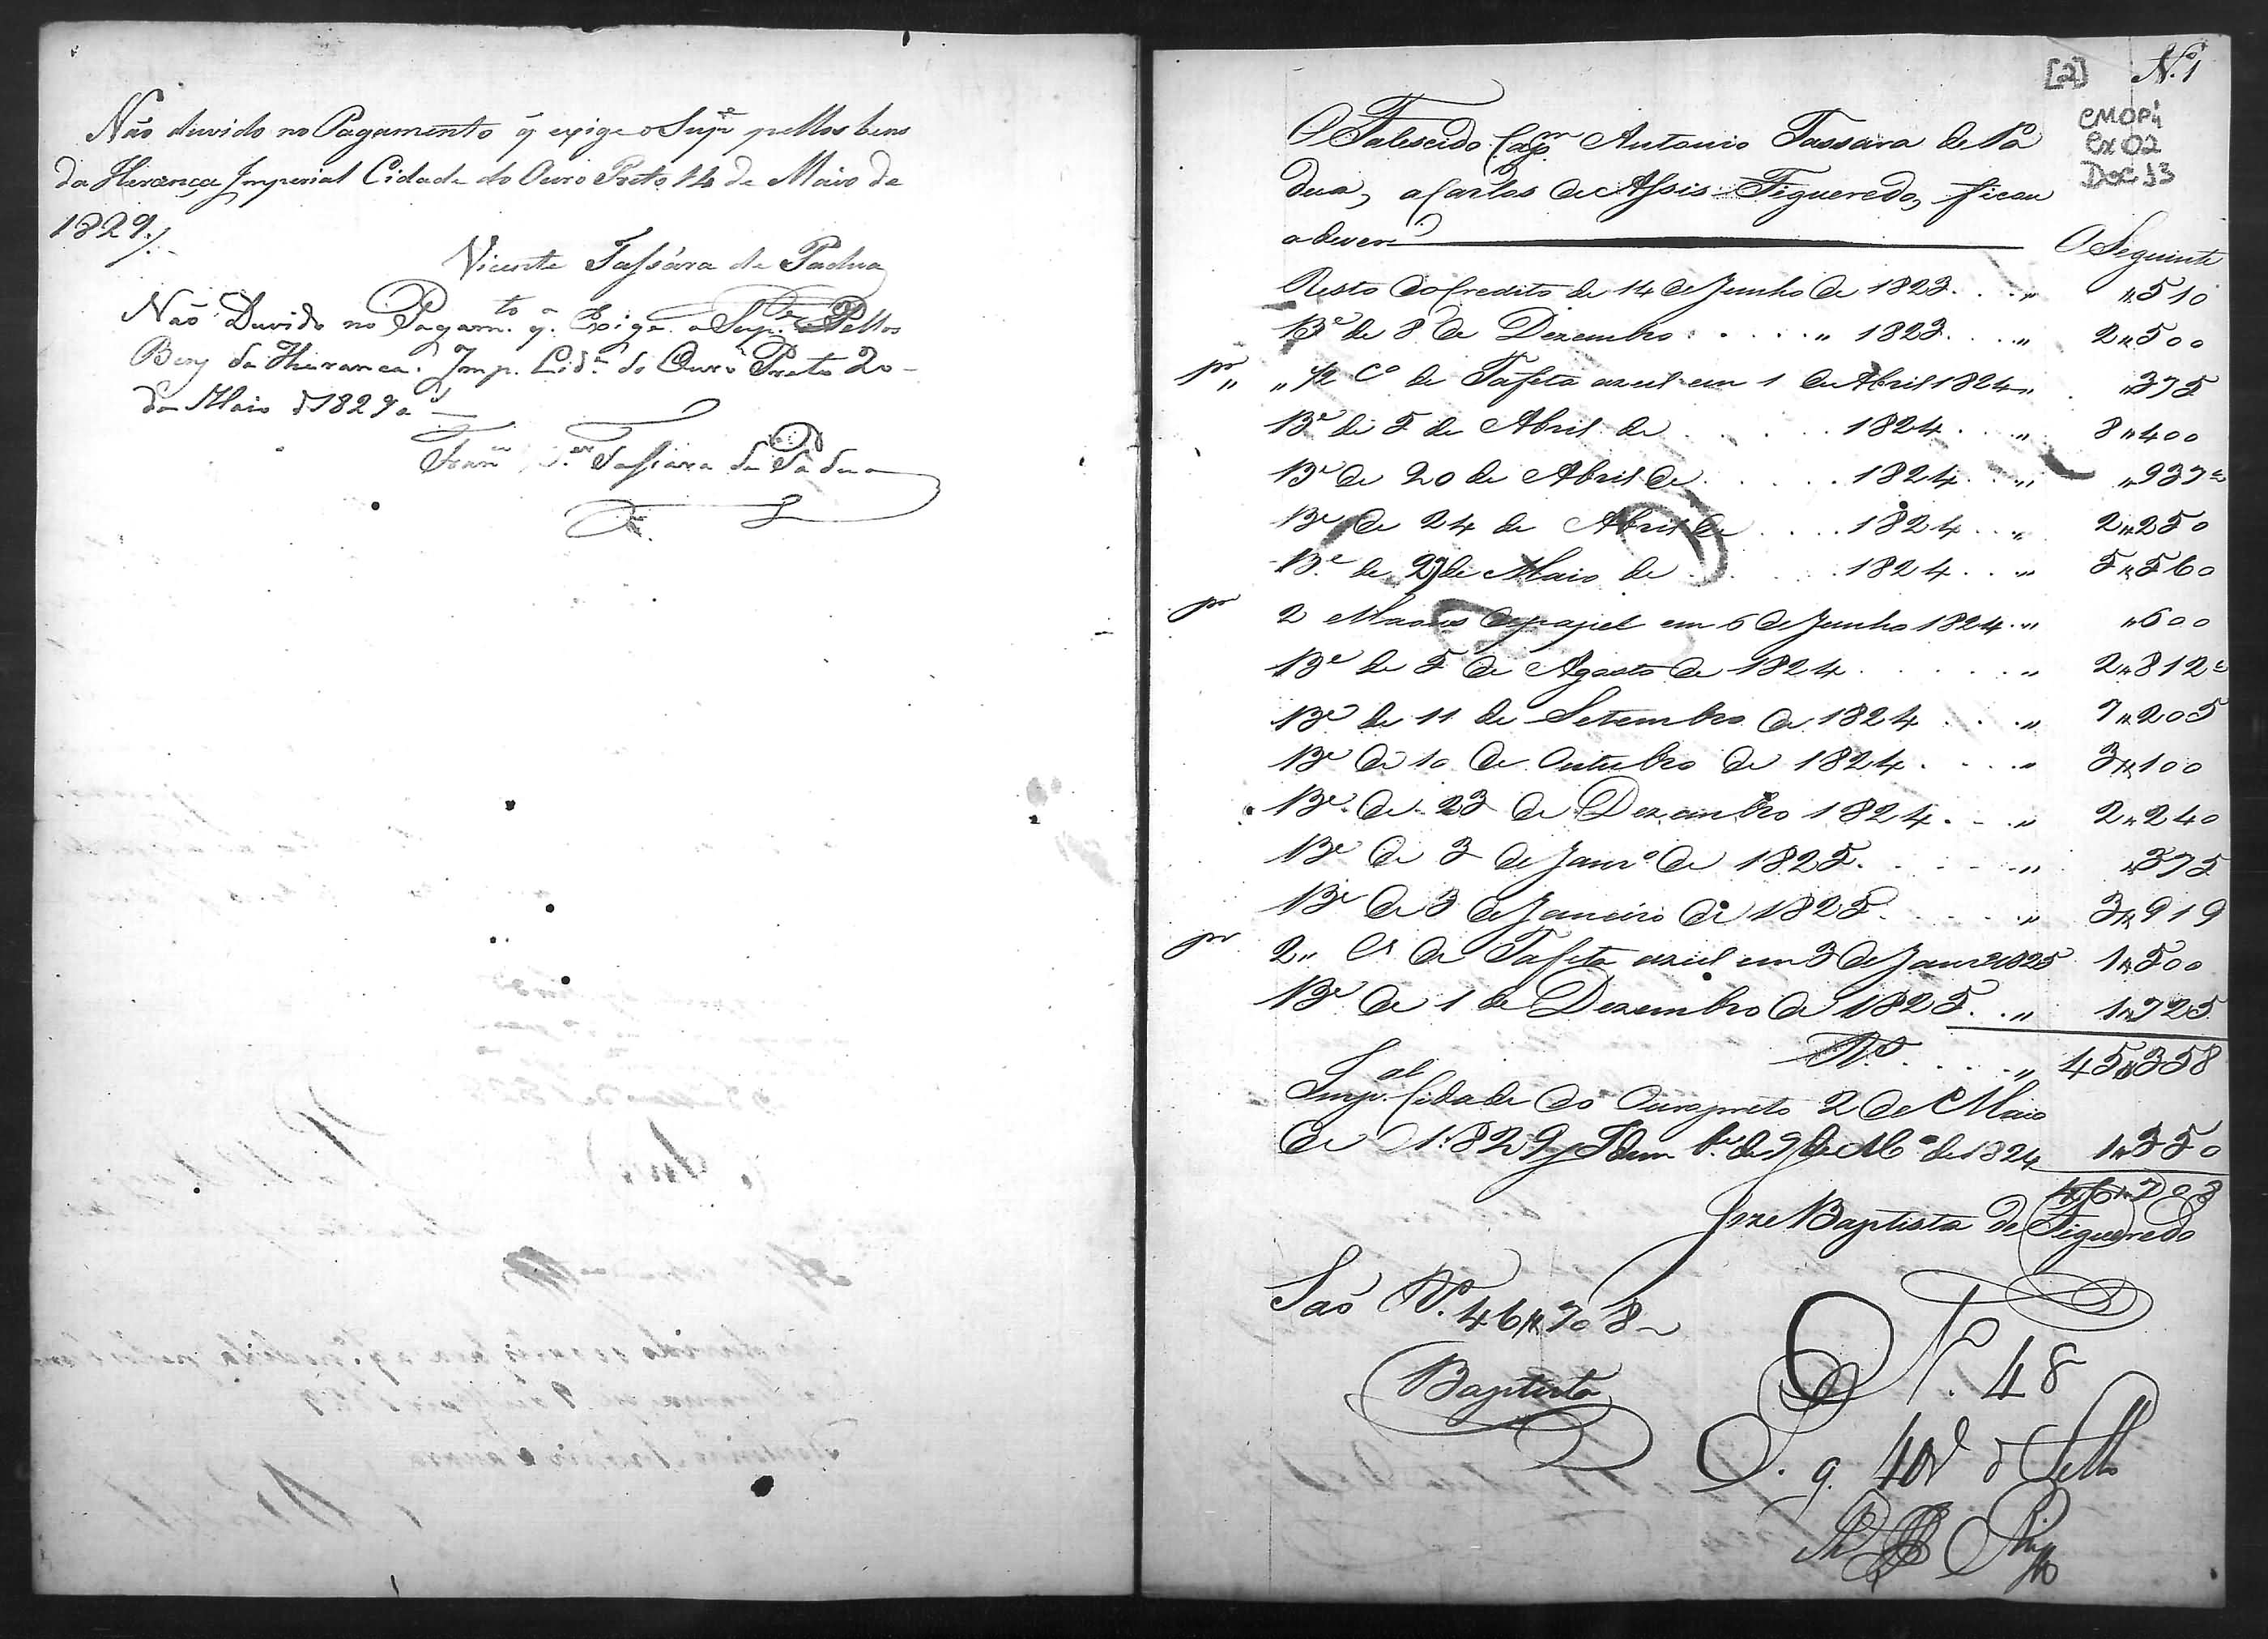 Não duvido no Pagamento q̃ exige o Sup.e pellos bens
da Herança Imperial Cidade do Ouro Preto 14 de Maio de
1829./.
Vicente Tassára de Padua
Não Duvido no Pagam.to q. Exige o Sup.te Pellos
Bens da Herança. Imp. Cid.e do Ouro Preto 20
de Maio d 1829 a
Fran.co Tassara de Padua
[2] N.o 1
CMOP
Cx 02
Doc 13
O Falescido Cap.m Antonio Tassara de Pa
dua, a Carlos de Assis Figueredo, ficou
a dever O Seguinte
Resto do Credito de 14 de Junho de 1823 . . . " "510
B.e de 8 de Dezembro . . . . " 1823 . . . " 2"500
pr " " 1/2 C.o de Tafeta azul em 1 de Abril 1824 " "375
B.e de 5 de Abril de . . . . 1824 . . " 8"400
B.e de 20 de Abril de . . . . 1824 . . " "937
B.e de 24 de Abril de . . . . 1824 . . " 2"250
B.e de 29 de Maio de . . . . 1824 . . " 5"560
pr 2 Maons de papel em 6 de Junho 1824 . " "600
B.e de 5 de Agosto de 1824 . . . . " 2"812
B.e de 11 de Setembro de 1824 . . . " 7"205
B.e de 10 de Outubro de 1824 . . . . " 3"100
B.e de 23 de Dezembro 1824 . . " 2"240
B.e de 3 de Janr.o de 1825 . . . . . " "375
B.e de 3 de Janeiro de 1825 . . . . " 3"919
pr 2" C.s de Tafeta azul em 3 de Janr.o 1825 1"500
B.e de 1 de Dezembro de 1825 . . " 1"725
R.s . . . . " 45"358
Imp.al Cidade do Ouro preto 2 de Maio
de 1829 Idem b.e de 9 de M.o de 1824 1"350
46"708
Joze Baptista de Figueredo
Saõ R.s 46"708
Baptista
N. 48
P. g. 40 r d Sello